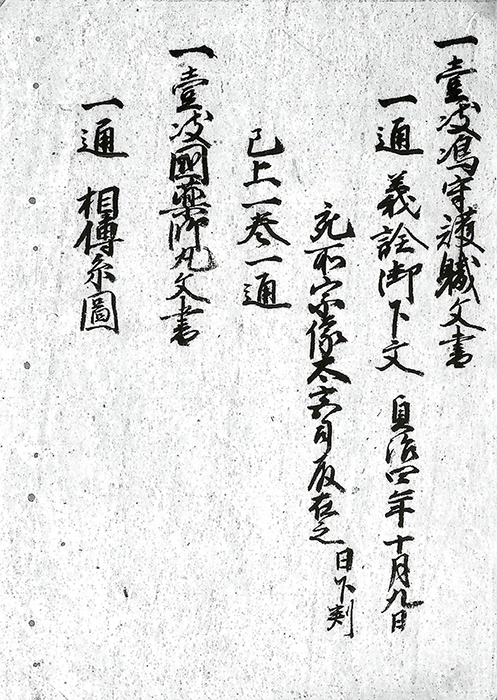 一壹岐嶋守護職文書
一通 義詮御下文 貞治四年十月九日
宛所宗像大宮司 在之 日下判
已上一巻一通
一壹岐國薬師丸文書
一通 相傳系圖